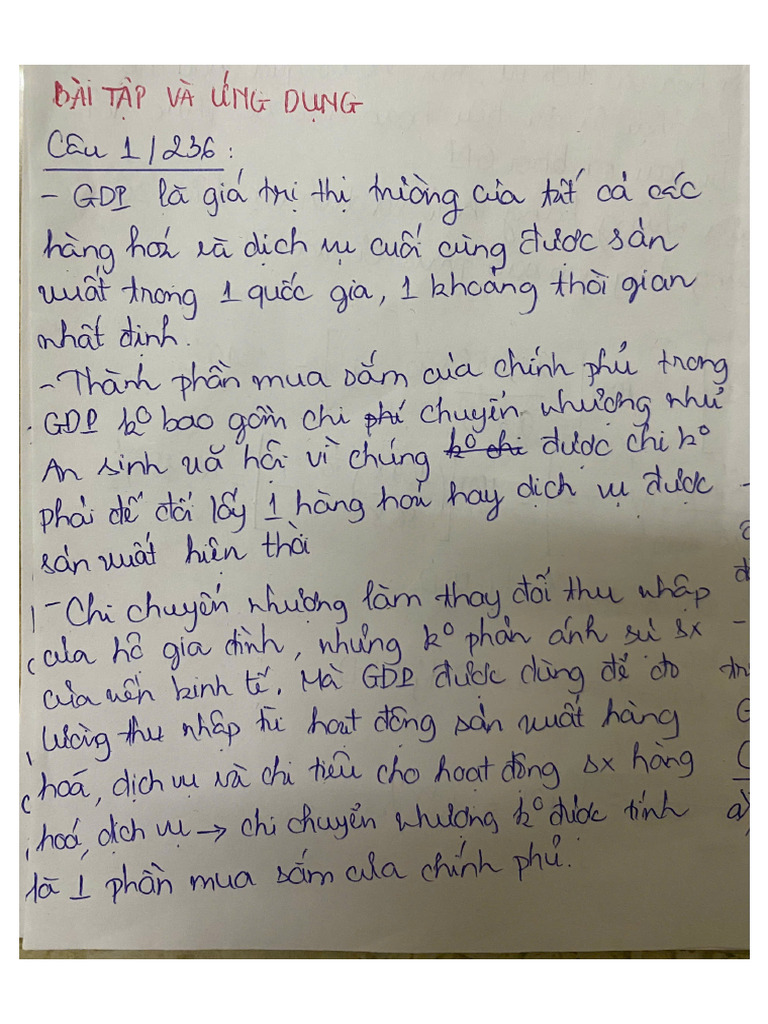 BÀI TẬP VÀ ỨNG DỤNG
Câu 1/236:
- GDP là giá trị thị trường của tất cả các
hàng hoá và dịch vụ cuối cùng được sản
xuất trong 1 quốc gia, 1 khoảng thời gian
nhất định.
- Thành phần mua sắm của chính phủ trong
GDP k⁰ bao gồm chi phí chuyển nhượng như
An sinh xã hội vì chúng k⁰ chi được chi k⁰
phải để đổi lấy 1 hàng hoá hay dịch vụ được
sản xuất hiện thời
- Chi chuyển nhượng làm thay đổi thu nhập
của hộ gia đình, nhưng k⁰ phản ánh sự sx
của nền kinh tế. Mà GDP được dùng để đo
lường thu nhập từ hoạt động sản xuất hàng
hoá, dịch vụ và chi tiêu cho hoạt động sx hàng
hoá, dịch vụ → chi chuyển nhượng k⁰ được tính
là 1 phần mua sắm của chính phủ.